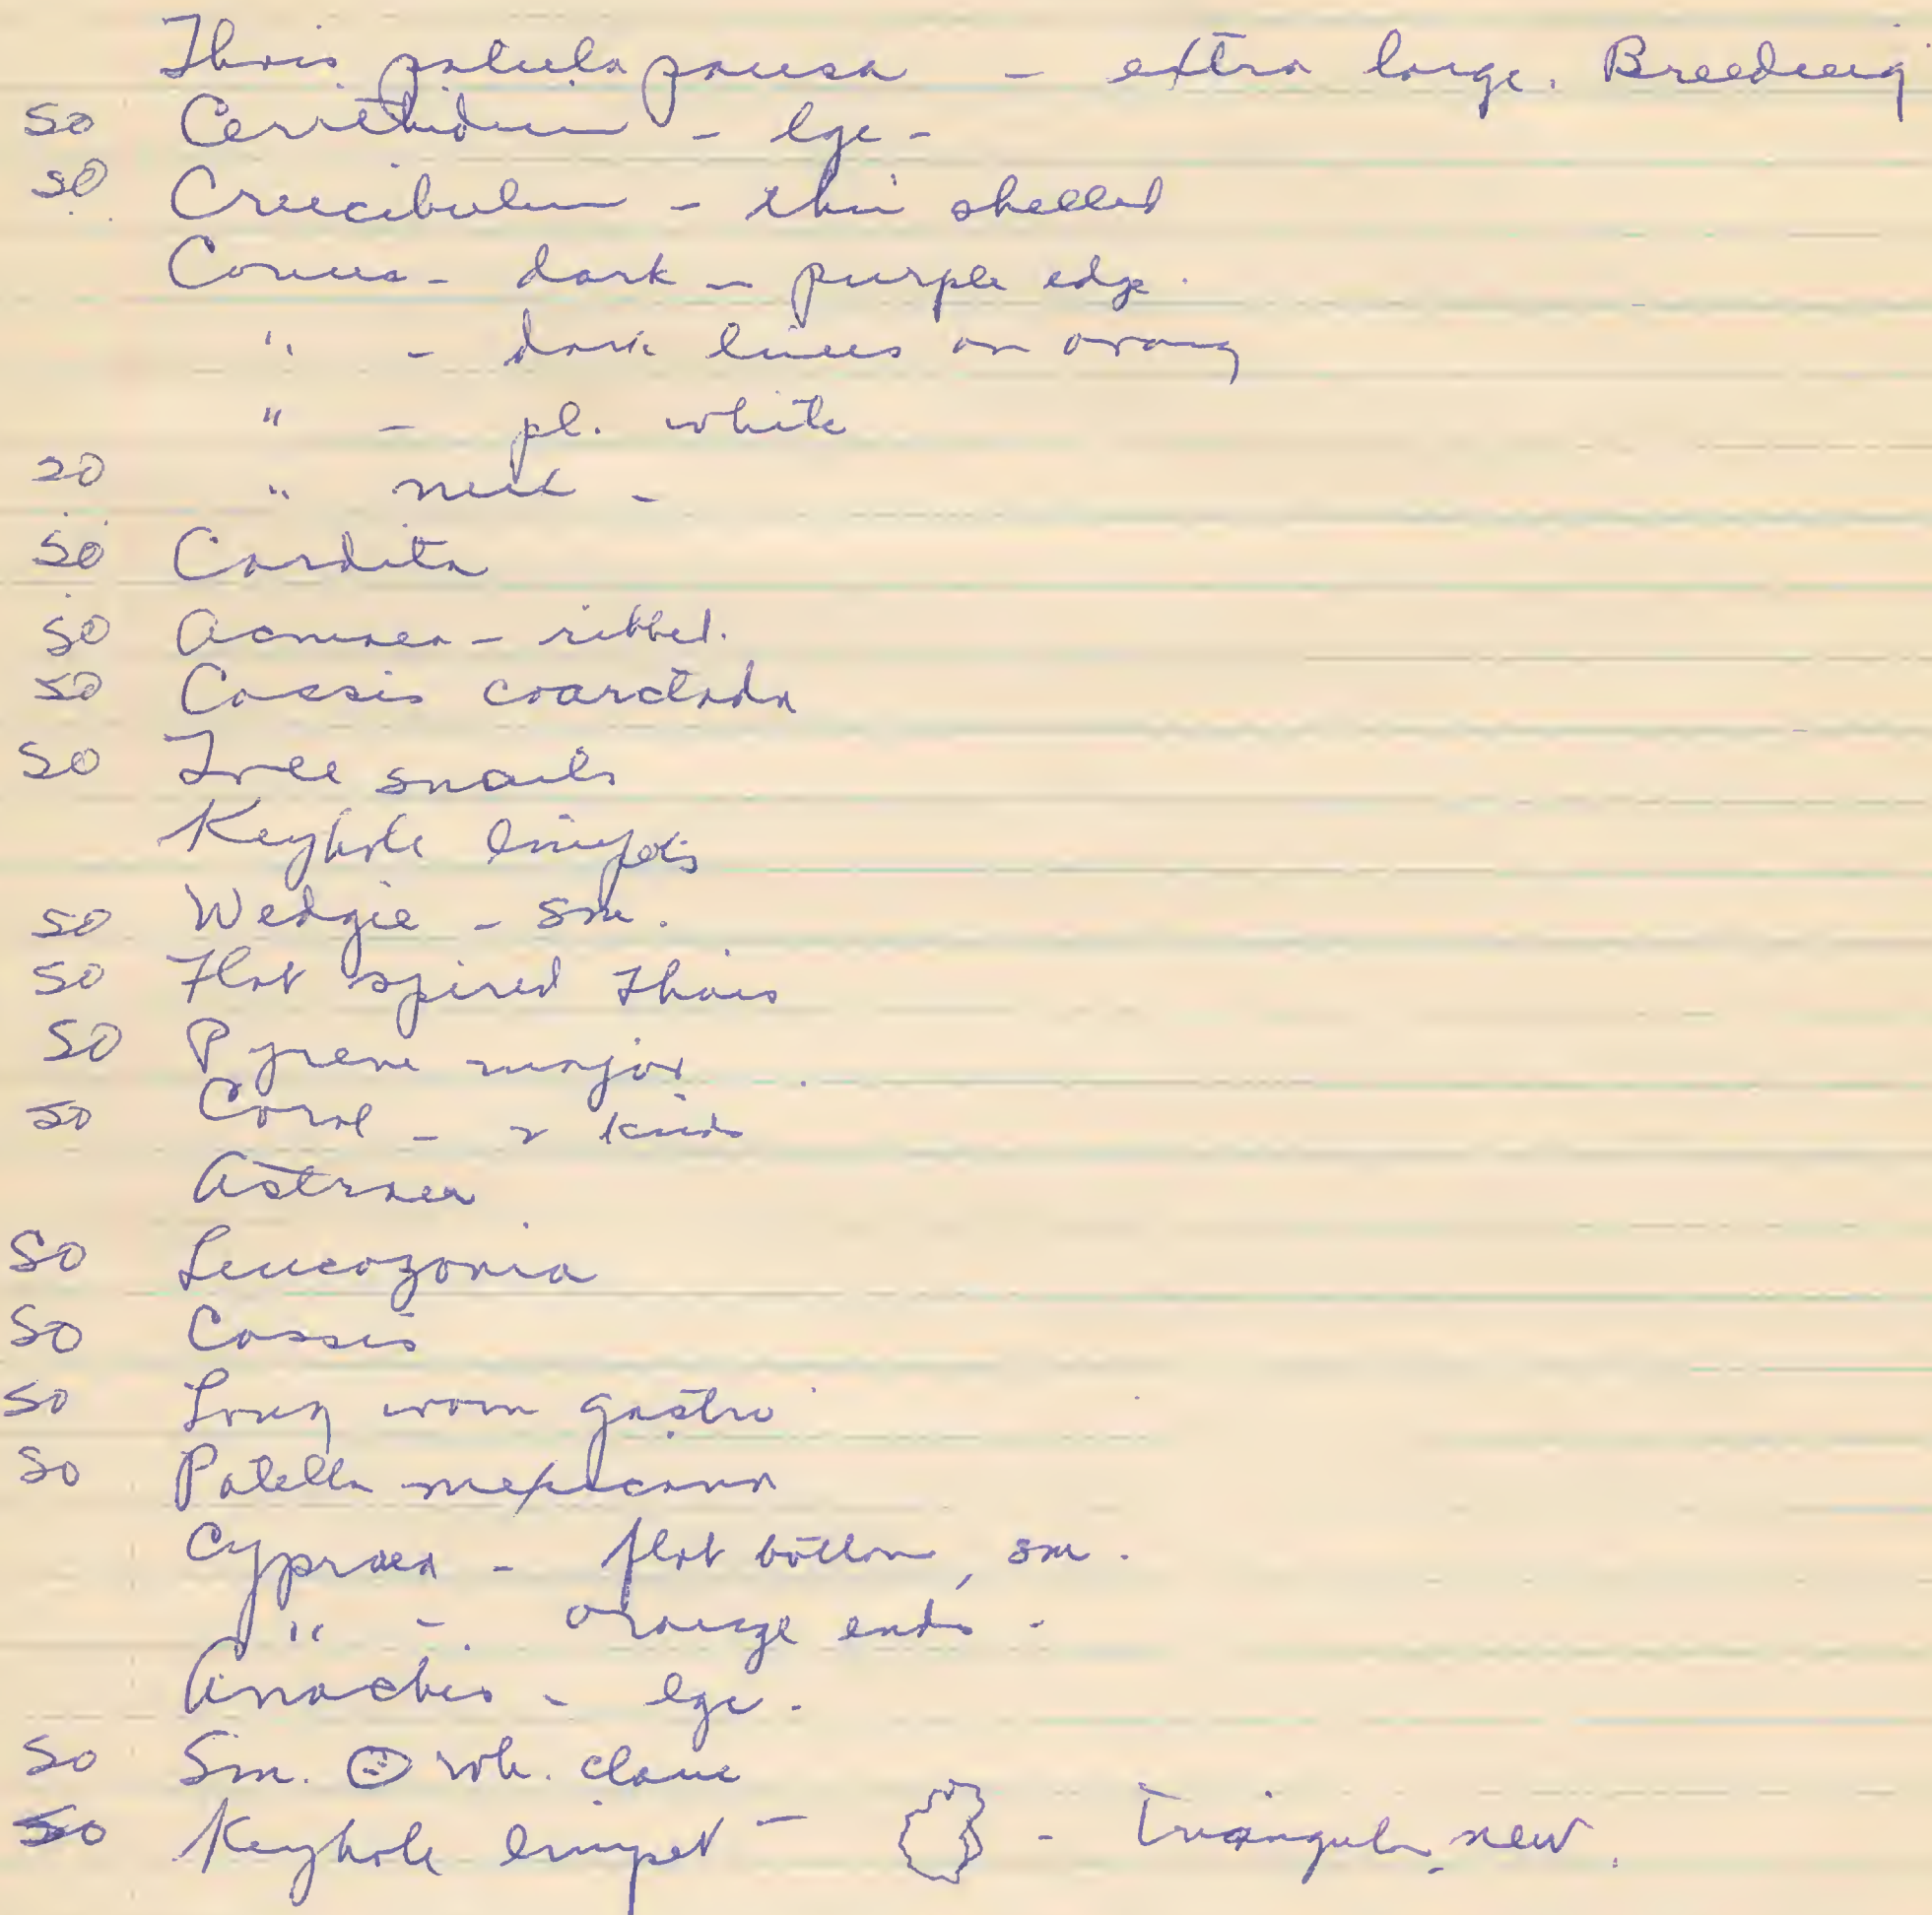 Thais patula pansa - extra large. Breeding
50 Cerithidium - lge -
50 Crucibulum - thin shelled
Conus - dark - purple edge.
" - dark lines on orang
" - pl. white
20 " nux -
50 Cardita
50 Acmaea - ribbed.
50 Cassis coarctada
50 Tree snails
Keyhole limpets
50 Wedgie - sm.
50 Flat spired Thais
50 Pyrene major
50 Coral - 2 kinds
Astraea
50 Leucozonia
50 Cassis
50 Long worn gastro
50 Patella mexicana
Cypraea - flat bottom, sm.
" - orange ends -
Anachis - lge.
50 Sm. wh. clam
50 Keyhole limpet - - triangular, new.